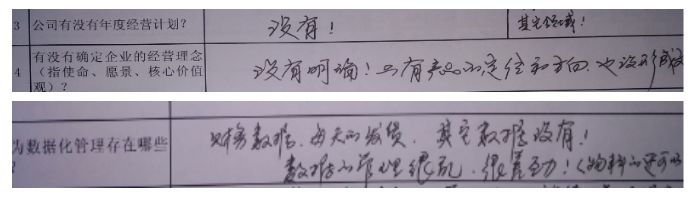 3 公司有没有年度经营计划? 没有!
其它领域!
4 有没有确定企业的经营理念
(指使命、愿景、核心价值 没有明确!只有产品的定位和方向,也没形成
观)?
为数据化管理存在哪些 财务数据、每天的发货、其它数据没有!
数据的管理很乱,很差劲!(物料的还可以